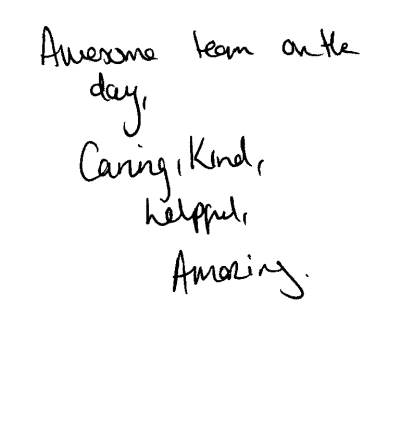 Awesome team on the
day,
Caring, Kind,
helpful,
Amazing.